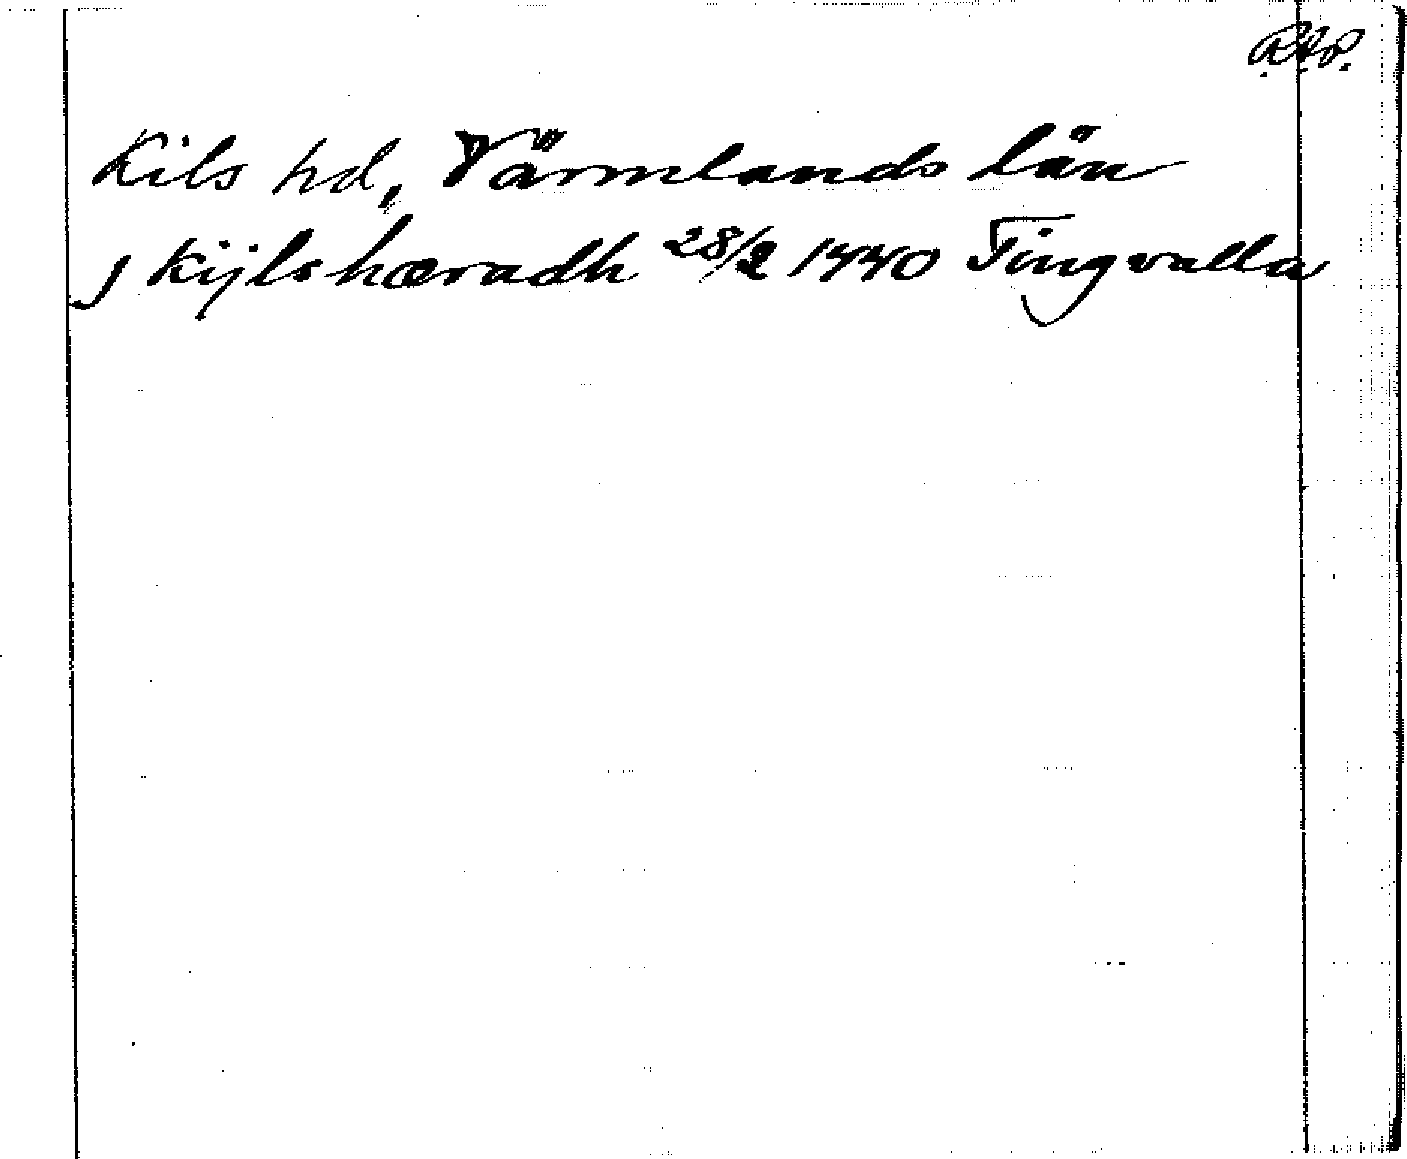 R.A.P.
Kils hd, Värmlands län
j Kijlshæradh 28/2 1440 Tingvalla